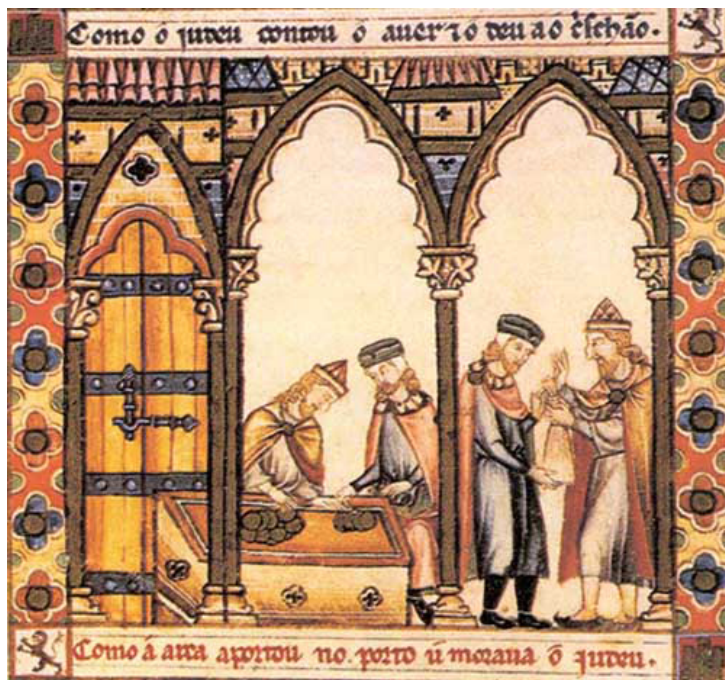 Como o iudeu contou o auer ⁊ o deu a o crischão.
Como á arca aportou no porto ú moraua o iudeu.